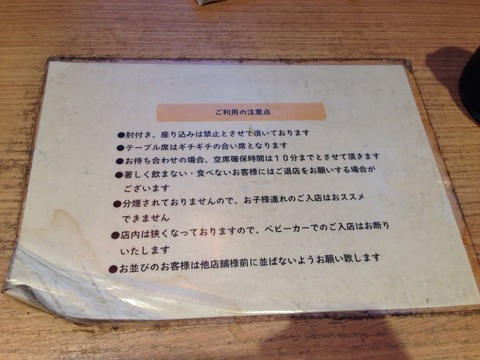 ご利用の注意点
●肘付き、座り込みは禁止とさせて頂いております
●テーブル席はギチギチの合い席となります
●お待ち合わせの場合、空席確保時間は１０分までとさせて頂きます
●著しく飲まない・食べないお客様にはご退店をお願いする場合が
ございます
●分煙されておりませんので、お子様連れのご入店はおススメ
できません
●店内は狭くなっておりますので、ベビーカーでのご入店はお断り
いたします
●お並びのお客様は他店舗様前に並ばないようお願い致します